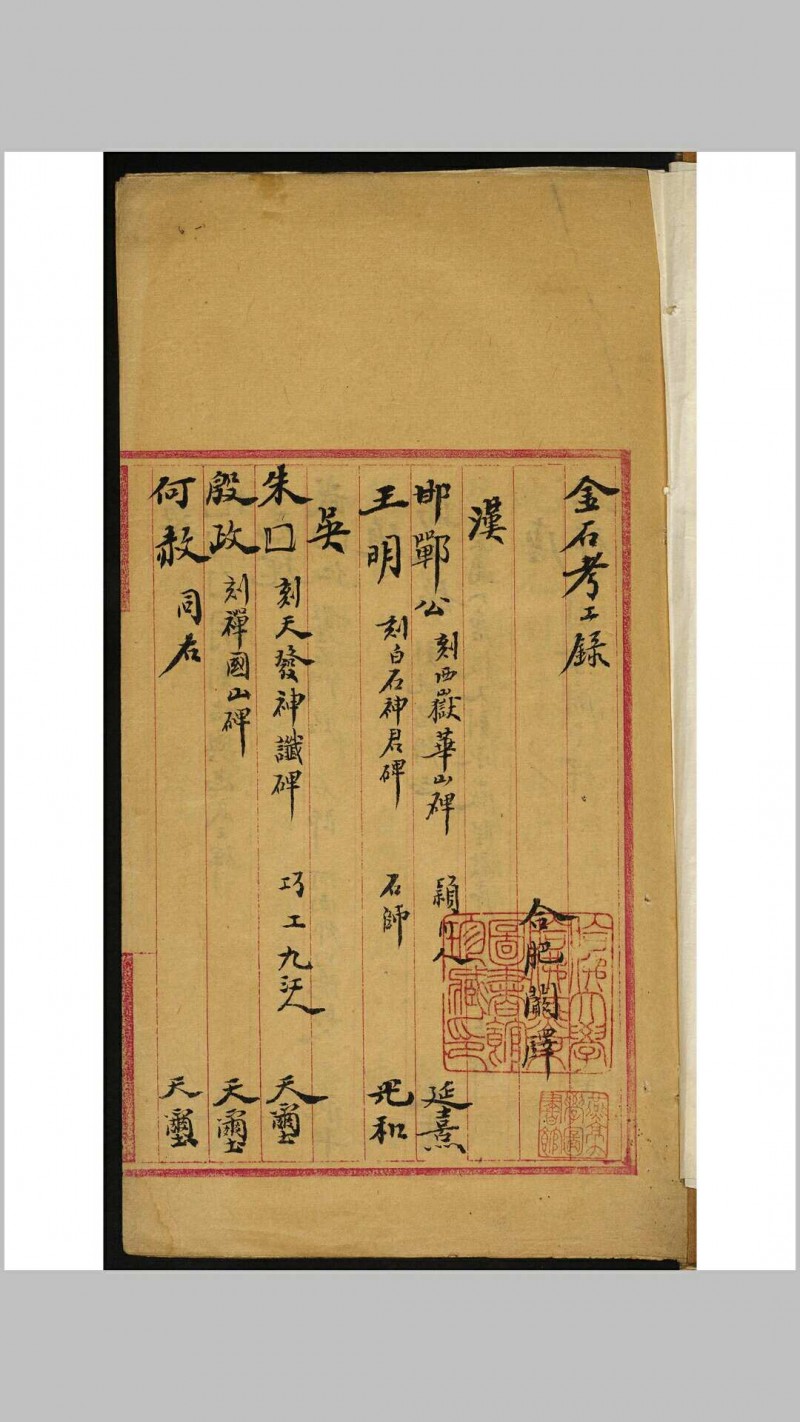 金石考工錄
合肥闞鐸
漢
邯鄲公 刻西嶽華山碑 潁川人 延熹
王明 刻白石神君碑 石師 光和
吳
朱囗 刻天發神讖碑 巧工九江人 天璽
殷政 刻禪國山碑 天璽
何赦 同右 天璽
圖書館
珍藏印